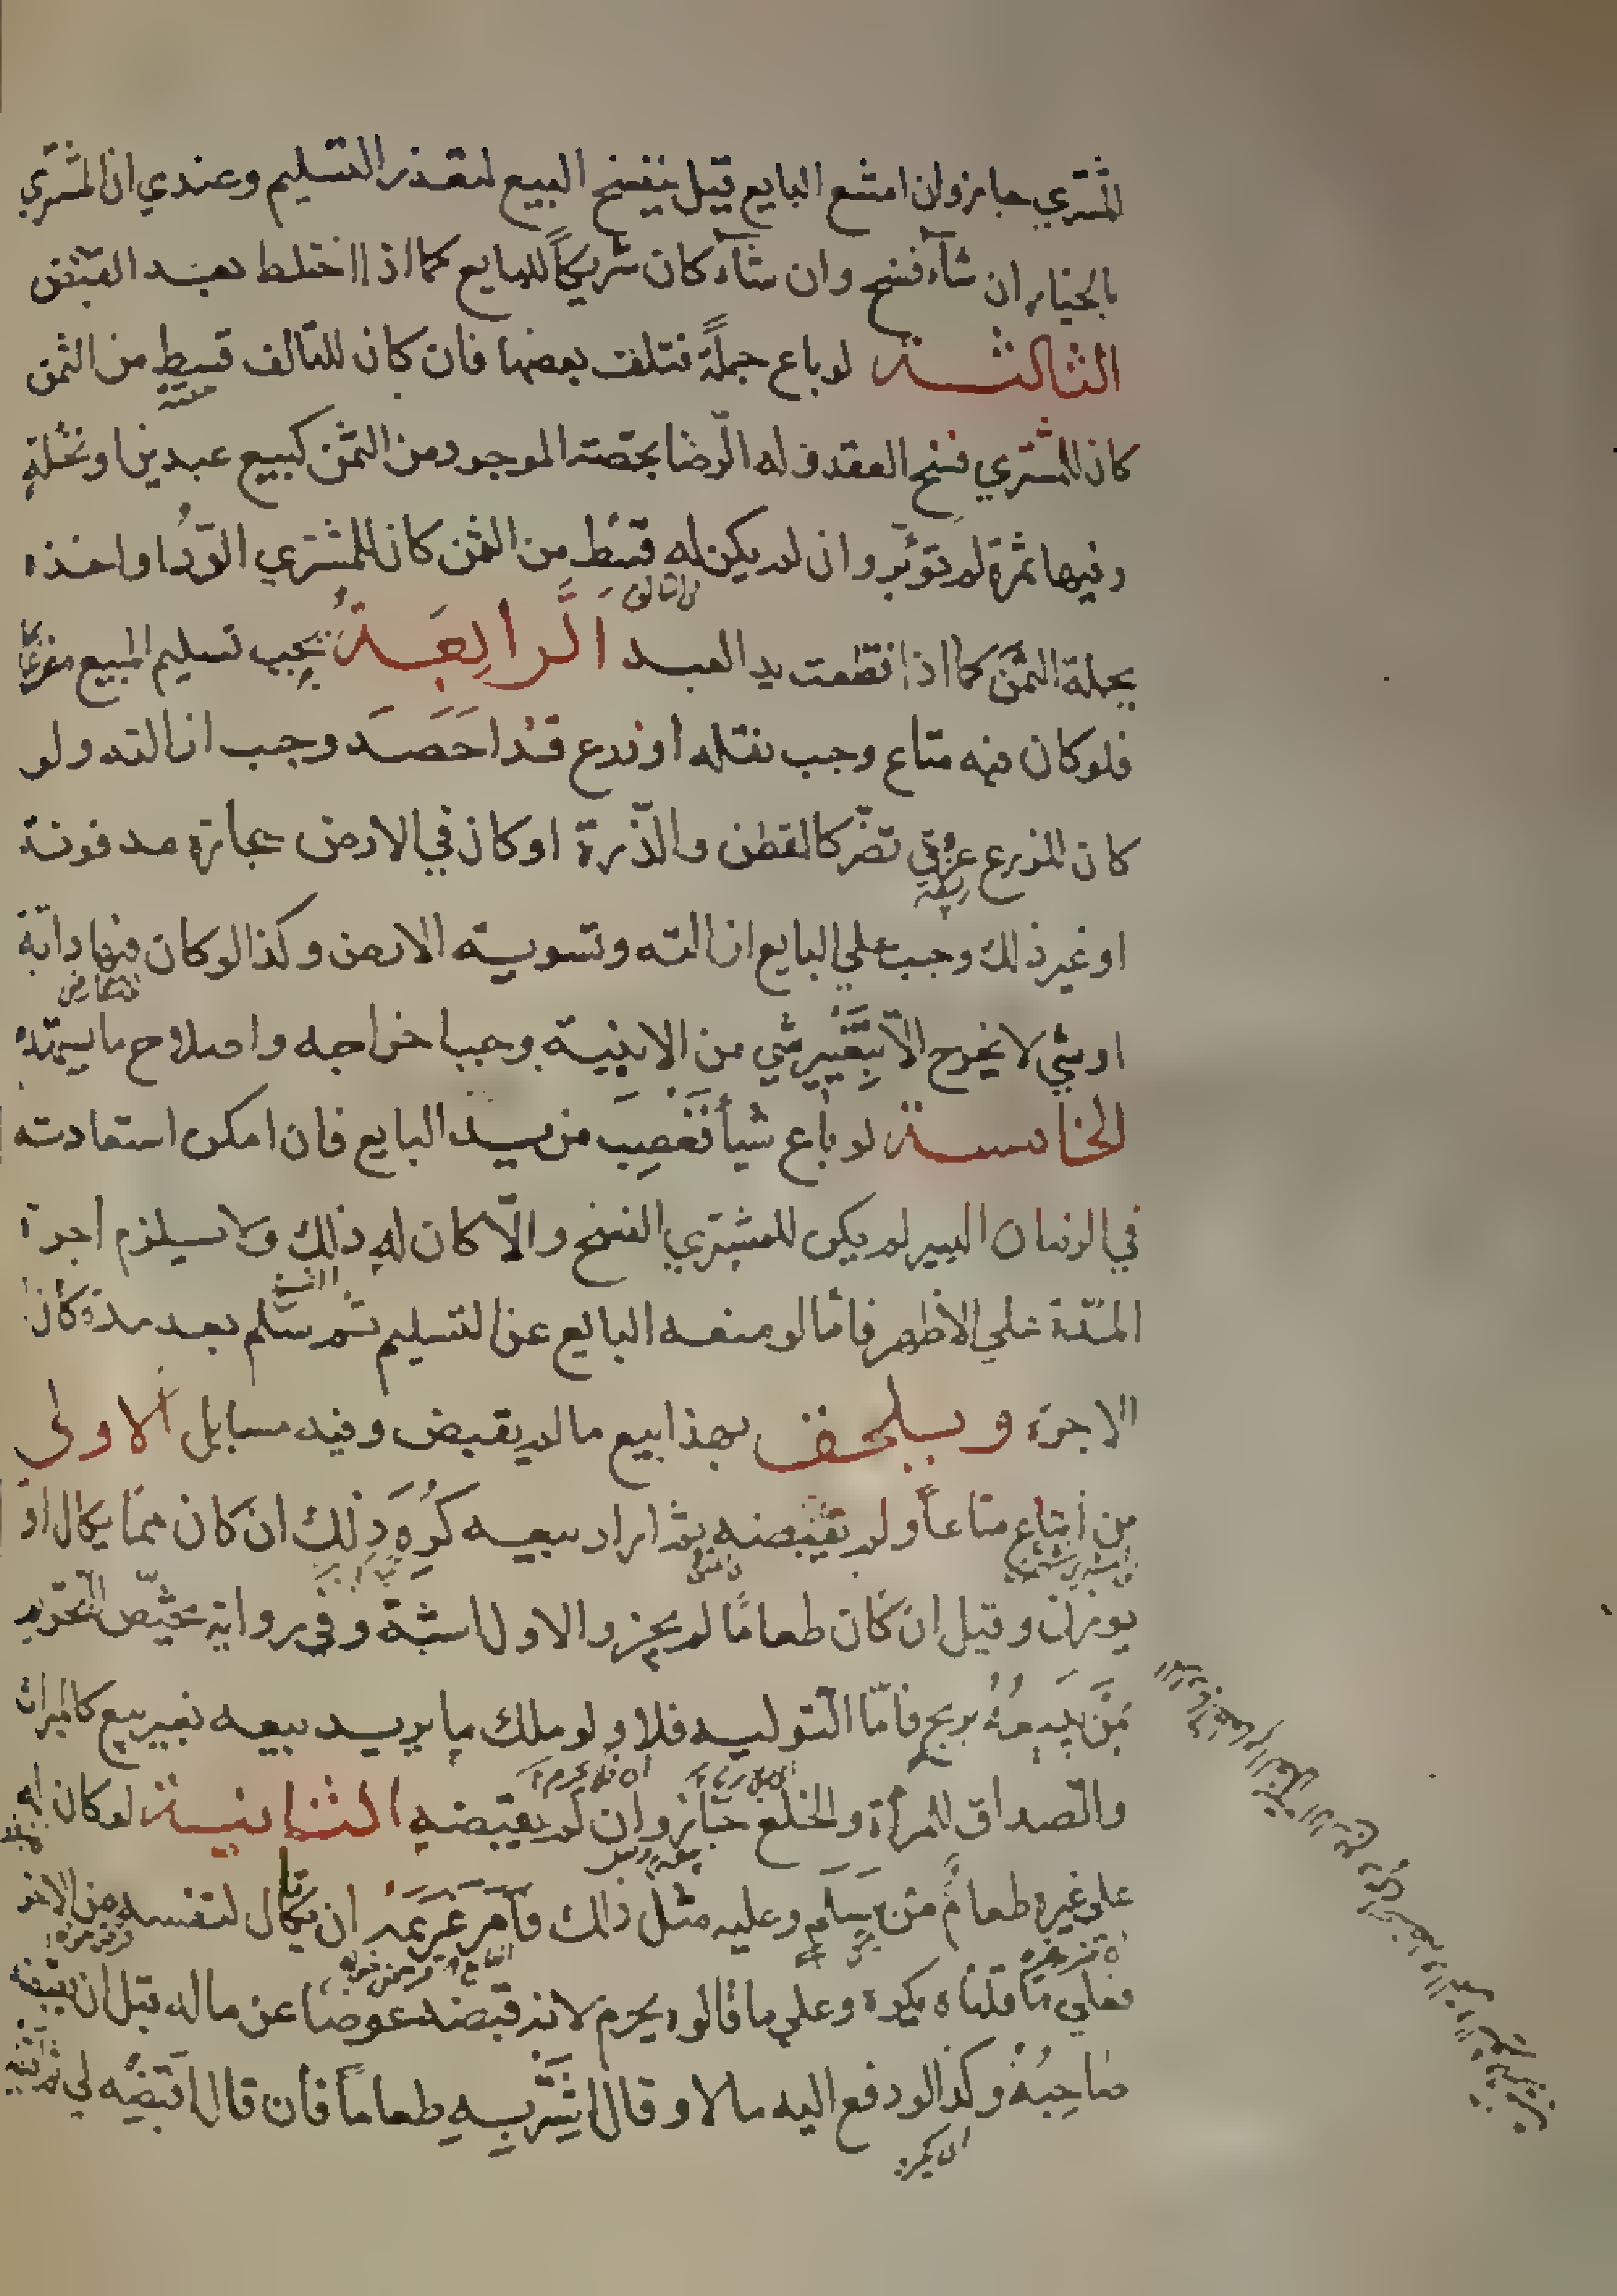 المشتري جايز وان امتنع البايع قيل ينفسخ البيع لتعذر التسليم وعندي ان المشتري
بالخيار ان شآء فسخ وان شآء كان شريكاً للبايع كما اذا اختلط بعد القبض
الثالثة لو باع جملةً فتلف بعضها فان كان للتالف قسط من الثمن
كان للمشتري فسخ العقد وله الرضا بحصته الموجود من الثمن كبيع عبدين او نخلة
وفيها ثمرة لم تؤبر وان لم يكن له قسط من الثمن كان للمشتري الرد او اخذه
بجملة الثمن كما اذا انقطعت يد العبد الرابعة يجب تسليم المبيع مفرغا
فلو كان فيه متاع وجب نقله أو زرع قد احصد وجب ازالته ولو
كان للزرع عروق تضر كالقطن والذرة او كان في الارض حجارة مدفونة
او غير ذلك وجب علي البايع ازالته وتسوية الارض وكذا لو كان فيها دابة
او شي لا يخرج الا بتغيير شي من الابنية وجب اخراجه واصلاح ما يستهدم
الخامسة لو باع شيأ فغصب من يد البايع فان امكن استعادته
في الزمان اليسير لم يكن للمشتري الفسخ والا كان له ذلك ولا يلزم أجرة
المدة علي الاظهر فأما لو منعه البايع عن التسليم ثم سلم بعد مدة كان
الاجرة ويلحق بهذا بيع ما لم يقبض وفيه مسايل الاولي
من ابتاع متاعاً ولم يقبضه ثم اراد بيعه كره ذلك ان كان مما يكال او
يوزن وقيل ان كان طعامًا لم يجز والاول اشبه وفي رواية يختص التحريم
بمن يبيعه بربح فأما التولية فلا ولو ملك ما يريد بيعه بغير بيع كالميراث
والصداق للمرأة والخلع جاز وان لم يقبضه الثانية لو كان له
علي غيره طعام من سلم وعليه مثل ذلك فأمر غريمه ان يكتال لنفسه من الاخر
فعلي ما قلناه يكره وعلي ما قالوه يحرم لانه قبضه عوضا عن ماله قبل ان يقبضه
صاحبه وكذا لو دفع اليه مالا وقال اشتر به طعاماً فأن قال اقبضه لي ثم اقبضه